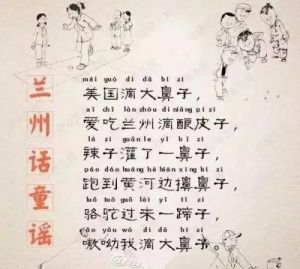 兰州话童谣
měi guó dī dà bí zi
美国滴大鼻子，
ài chī lán zhōu dī niàng pí zi
爱吃兰州滴酿皮子，
là zi guàn le yī bí zi
辣子灌了一鼻子，
pǎo dào huáng hé biān xǐng bí zi
跑到黄河边擤鼻子，
luò tuo guò lái yī tí zi
骆驼过来一蹄子，
āo yōu wǒ dī dà bí zi
嗷呦我滴大鼻子。